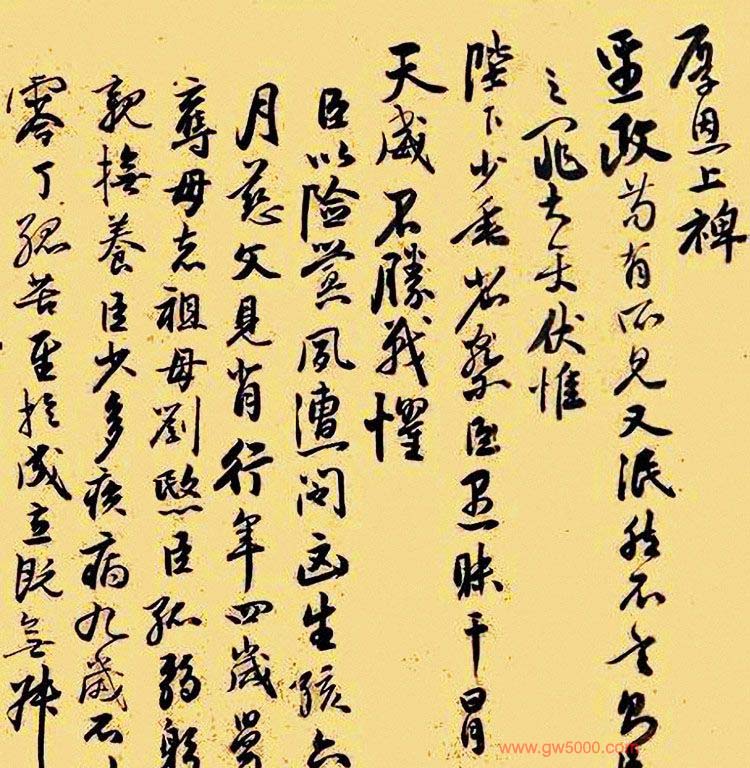 厚恩上裨
聖政苟有所見又泯然不言
之罪大矣伏惟
陛下少垂省察臣愚昧干冒
天威不勝戰懼
臣以險釁夙遭閔凶生孩六
月慈父見背行年四歲舅
奪母志祖母劉愍臣孤弱躬
親撫養臣少多疾病九歲不
零丁孤苦至於成立既無叔
www.gw5000.com